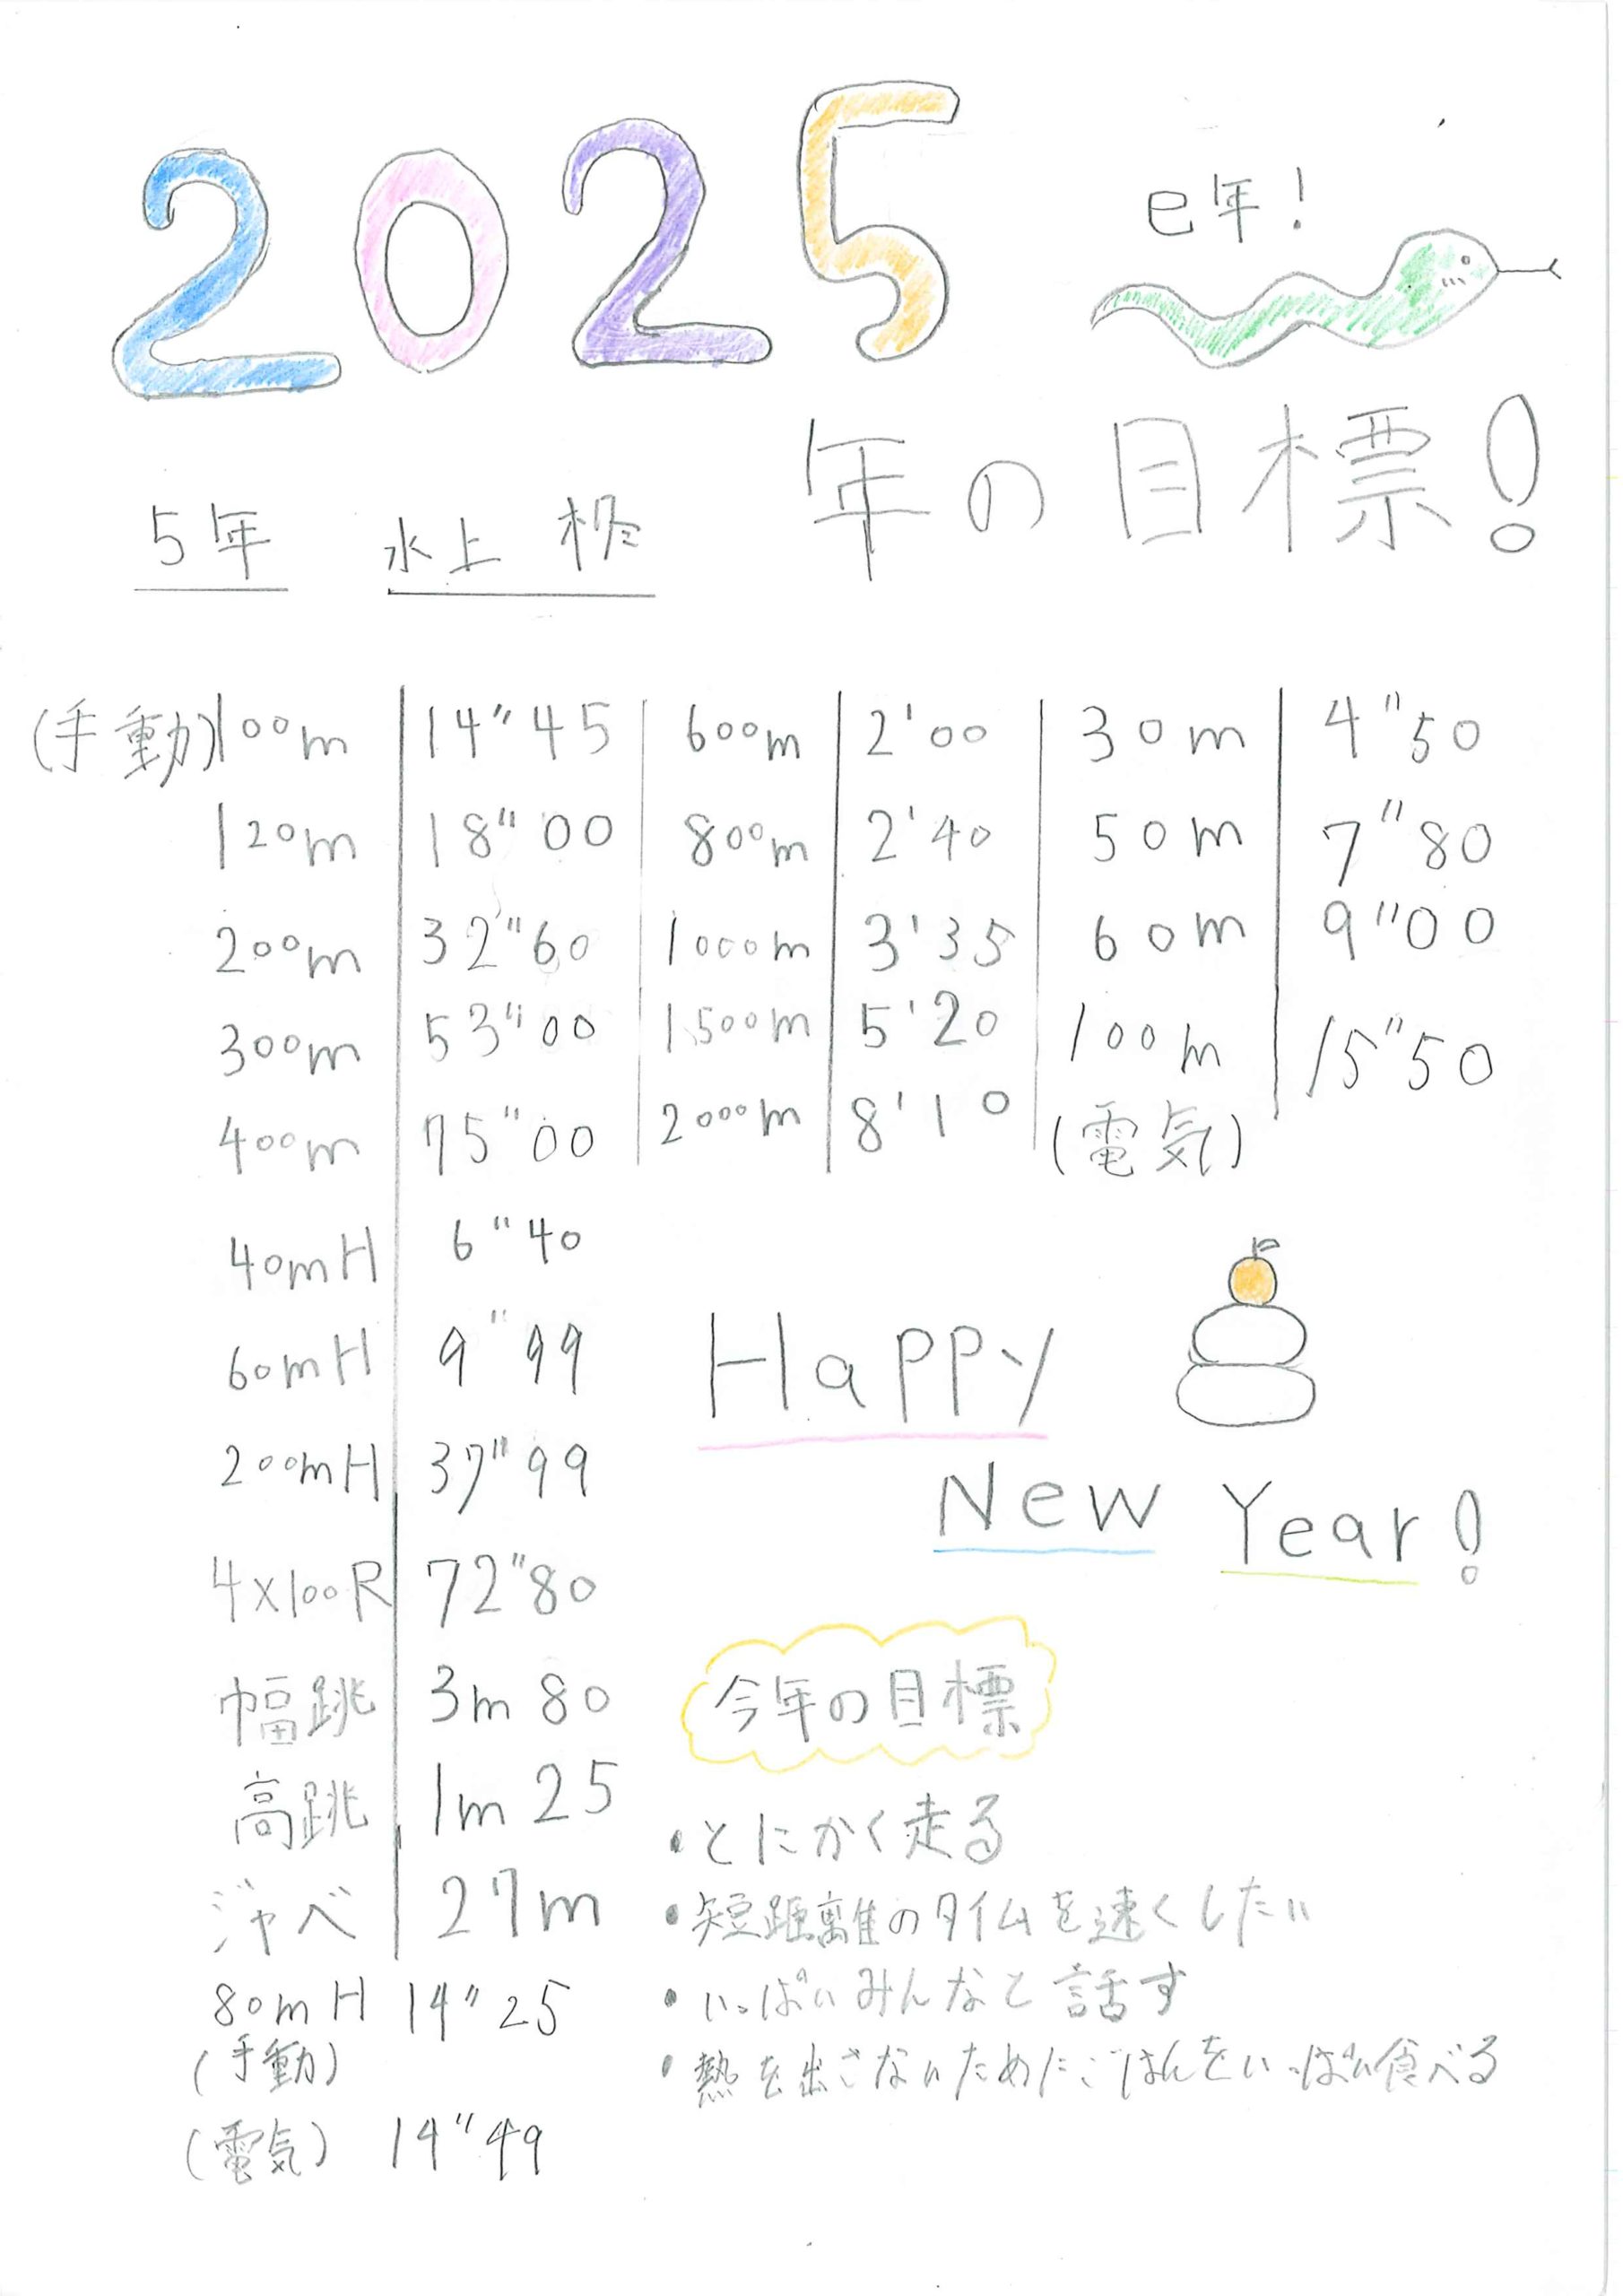 2025
巳年!
年の目標!
5年 水上 柊
(手動)100m 14"45 600m 2'00 30m 4"50
120m 18"00 800m 2'40 50m 7"80
200m 32"60 1000m 3'35 60m 9"00
300m 53"00 1500m 5'20 100m 15"50
400m 75"00 2000m 8'10 (電気)
40mH 6"40
60mH 9"99
200mH 37"99
4×100R 72"80
幅跳 3m80
高跳 1m25
ジャベ 27m
80mH 14"25
(手動)
(電気) 14"49
Happy
New Year!
今年の目標
・とにかく走る
・短距離のタイムを速くしたい
・いっぱいみんなと話す
・熱を出さないためにごはんをいっぱい食べる